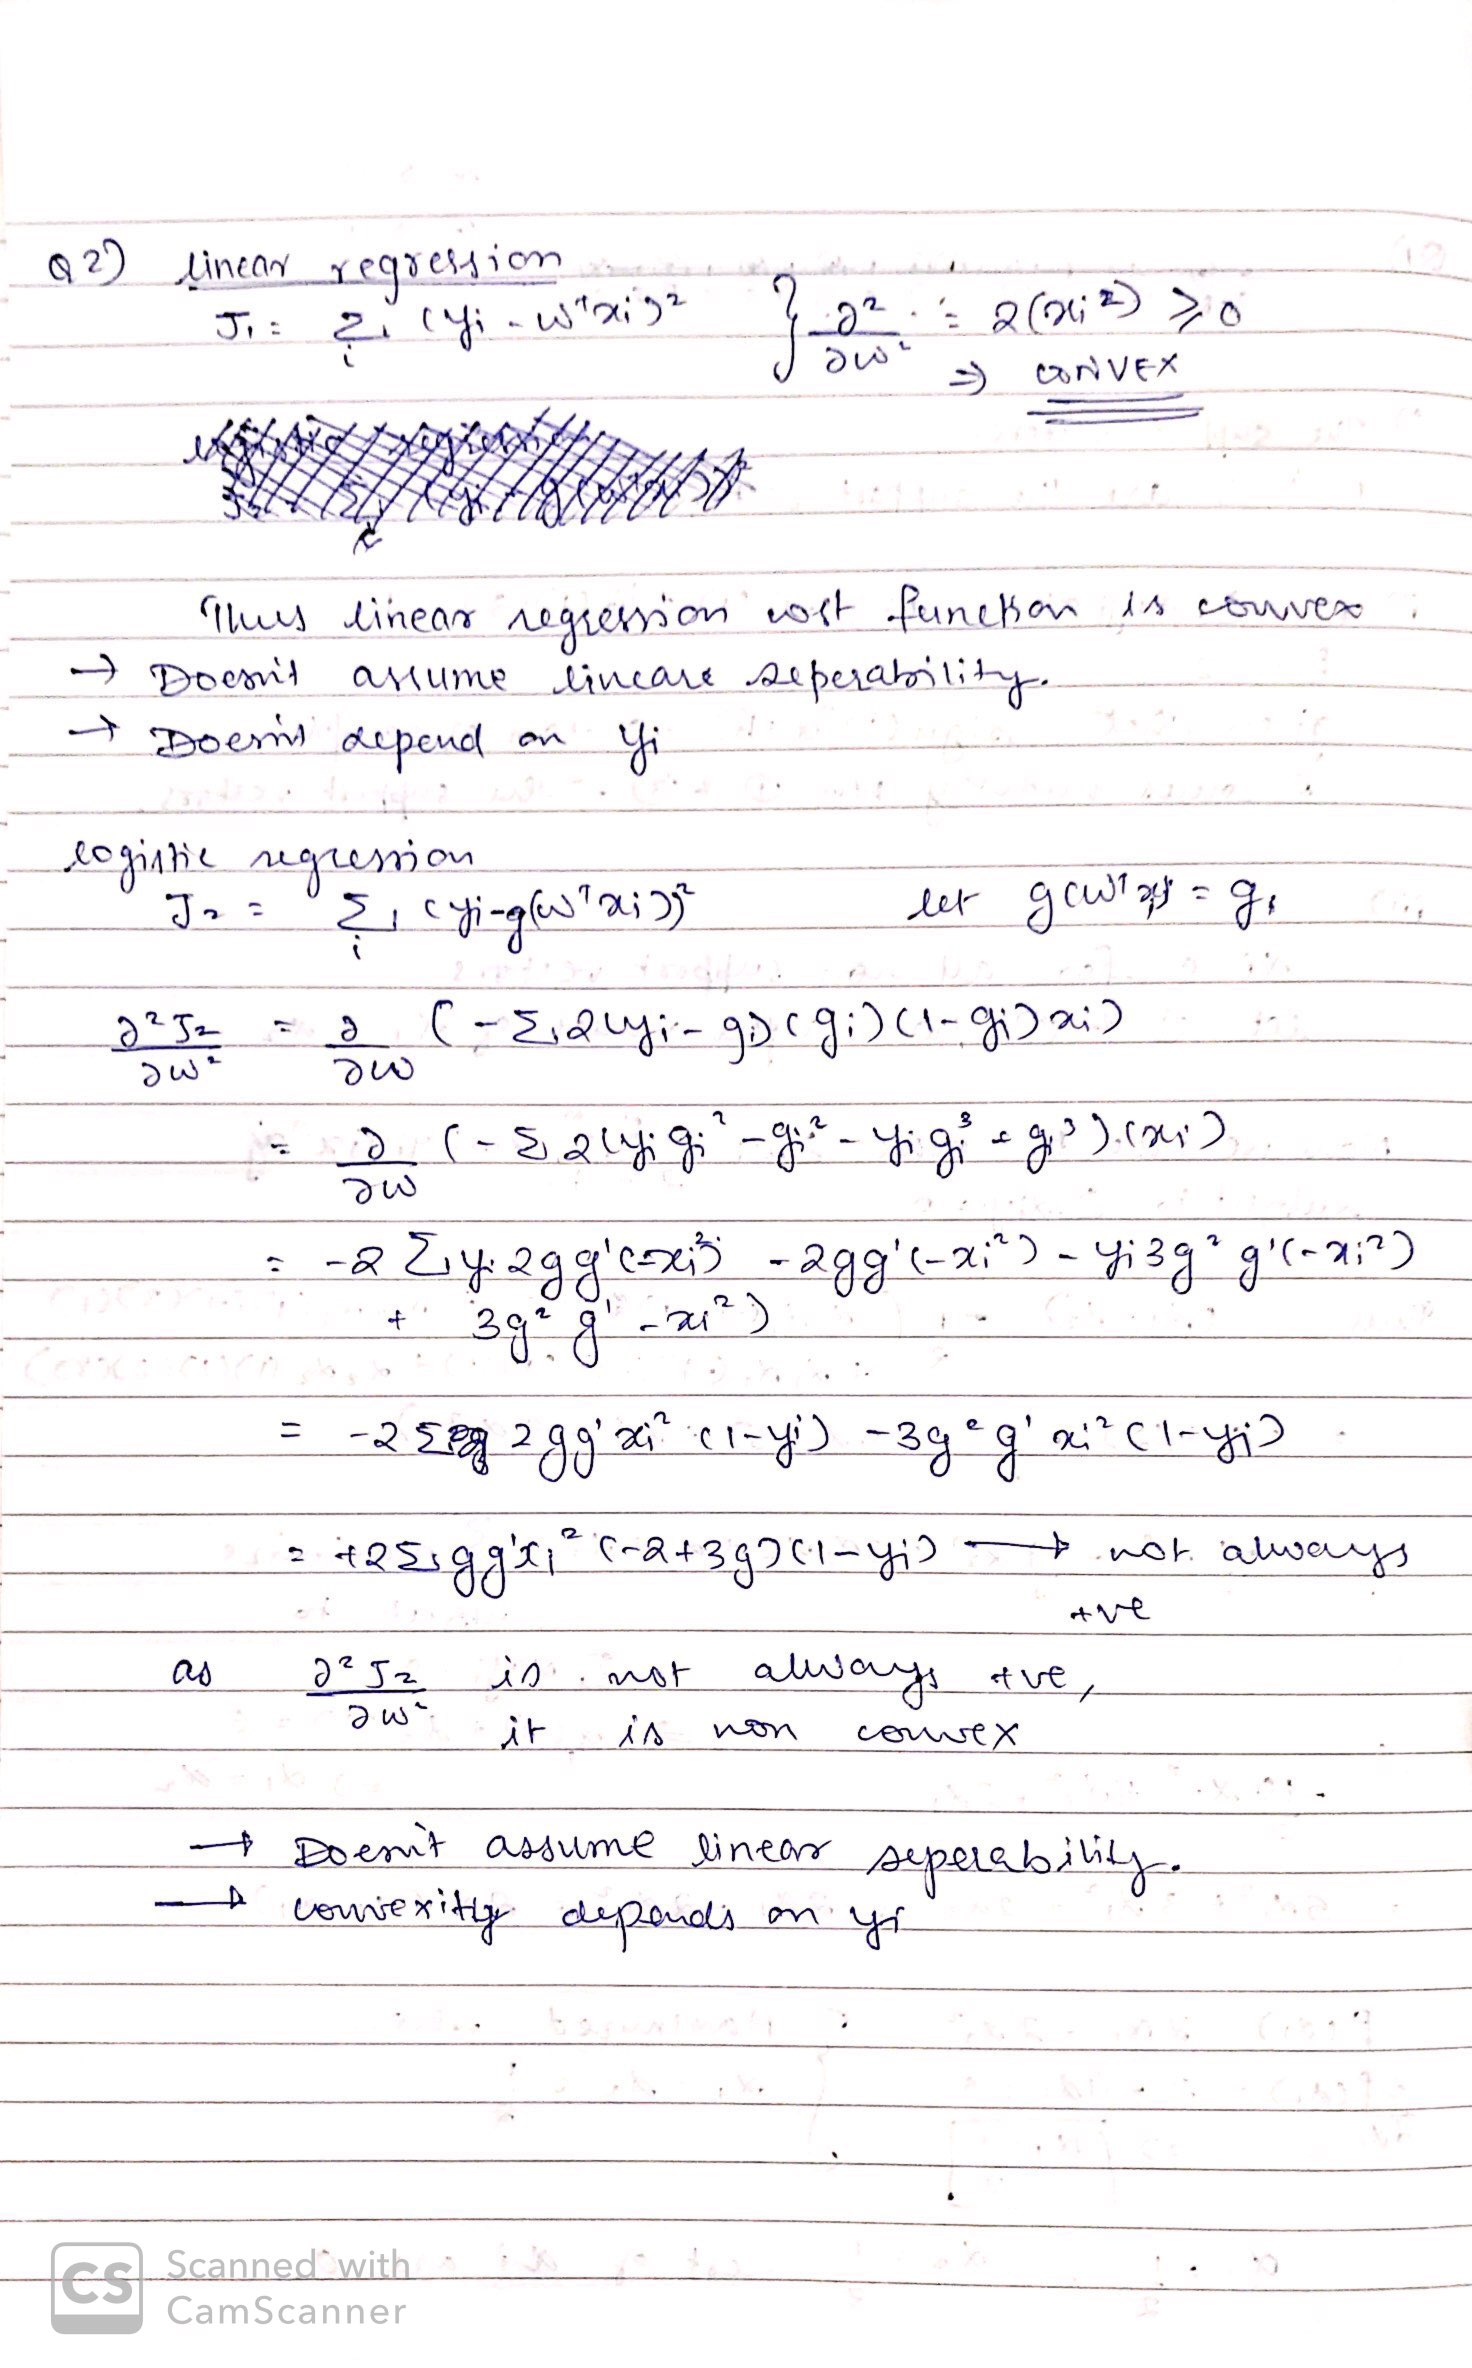 Q2) linear regression
J₁ = Σᵢ (yi - wᵀxi)² } ∂²/∂w² = 2(xi²) ≥ 0
⇒ CONVEX
Thus linear regression cost function is convex
→ Doesn't assume lineare seperability.
→ Doesn't depend on yi
logistic regression
J₂ = Σᵢ (yi-g(wᵀxi))² let g(wᵀxi) = gi
∂²J₂/∂w² = ∂/∂w (-Σ 2(yi-gi)(gi)(1-gi)xi)
= ∂/∂w (-Σ 2(yigi² - gi² - yigi³ + gi³).(xi)
= -2 Σ yi 2gg'(-xi²) - 2gg'(-xi²) - yi3g² g'(-xi²)
+ 3g² g' -xi²)
= -2 Σ 2gg'xi² (1-yi) - 3g²g' xi² (1-yi)
= +2Σ gg'xi² (-2+3g)(1-yi) → not always
+ve
as ∂²J₂/∂w² is not always +ve,
it is non convex
→ Doesn't assume linear seperability.
→ convexity depends on yi
CS Scanned with
CamScanner